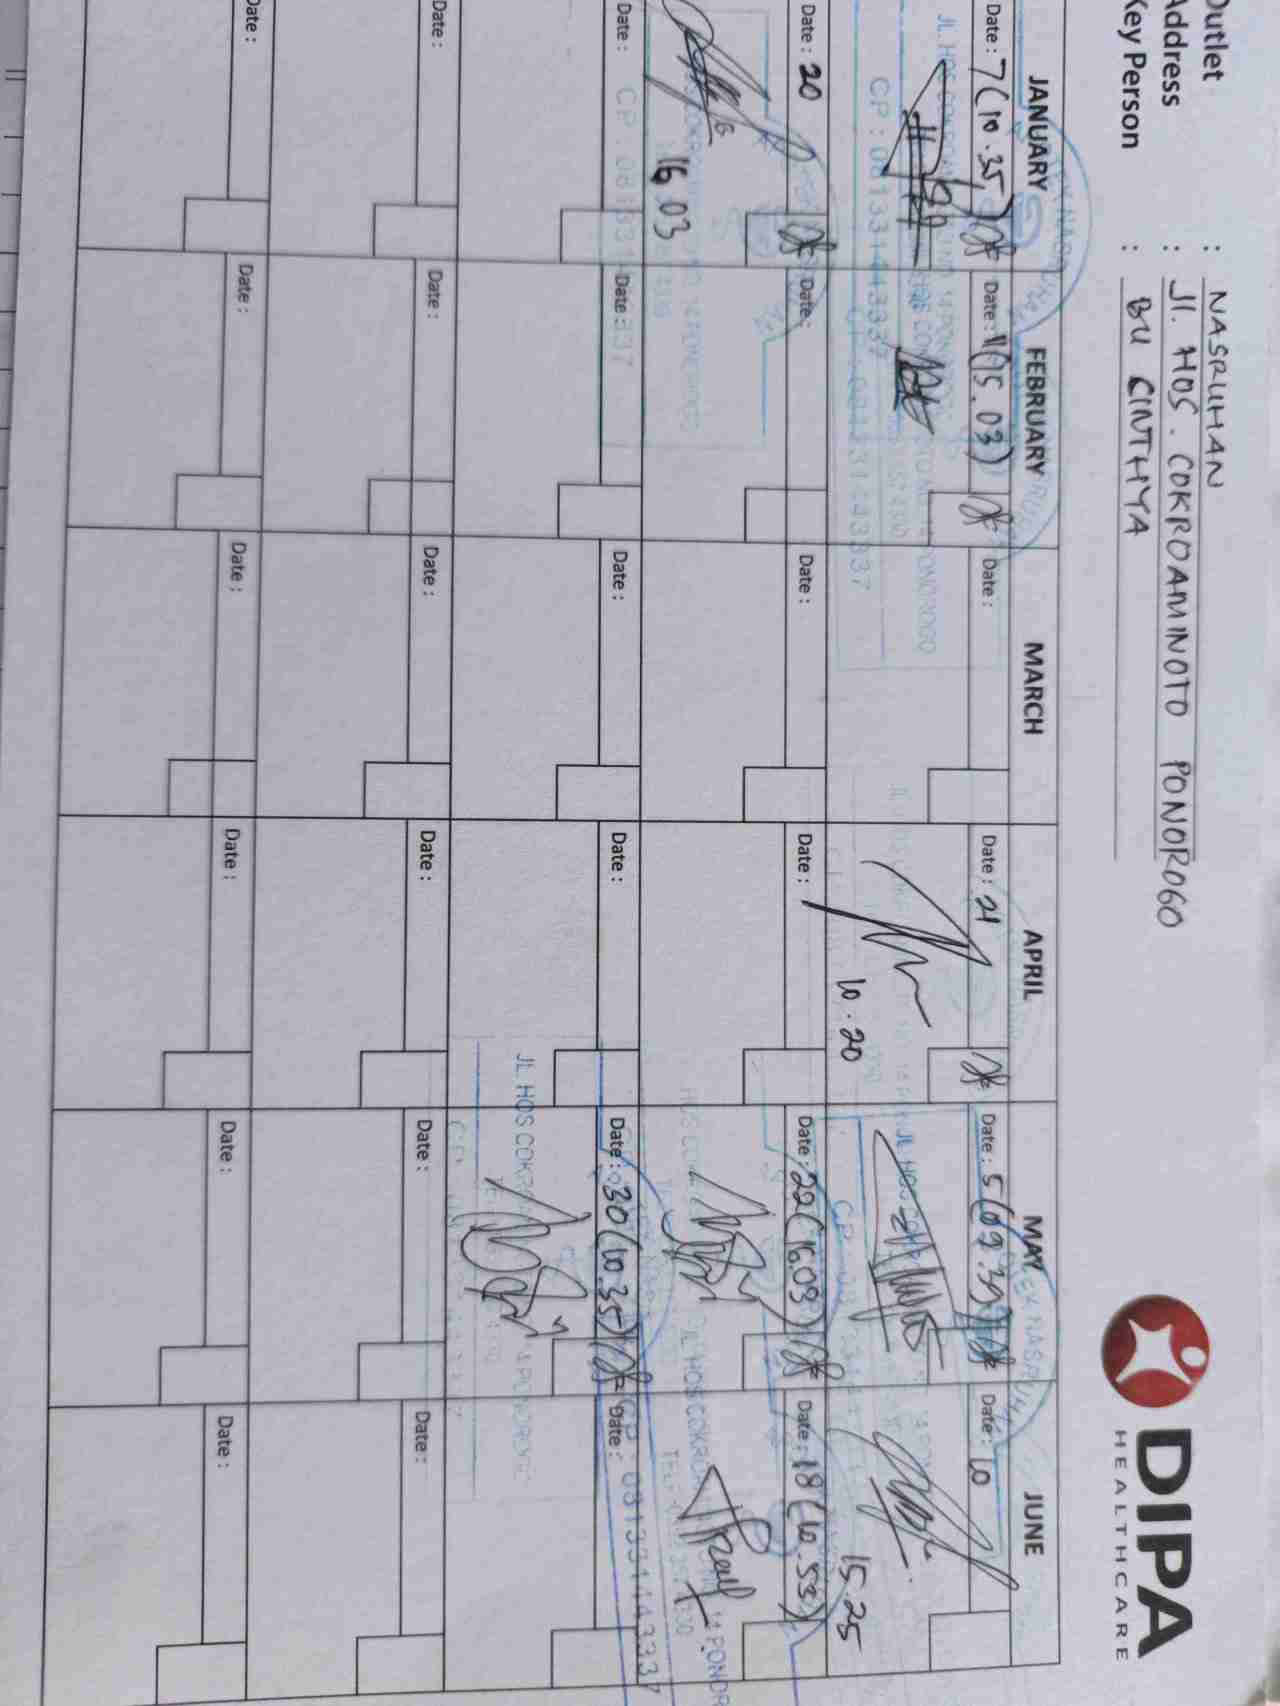 Outlet : NASRUHAN
Address : Jl. HOS. COKROAMINOTO PONOROGO
Key Person : BU CINTHYA
DIPA
HEALTHCARE
JANUARY FEBRUARY MARCH APRIL MAY JUNE
Date : 7 (10.35) Date : 11 (15.03) Date : Date : 21 Date : 5 (09.39) Date : 10
10.20 15.25
Date : 20 Date : Date : Date : Date : 22 (16.03) Date : 18 (10.53)
16.03
Date : Date : Date : Date : Date : 30 (10.35) Date :
CP : 081331443337
JL. HOS COKRO
14 PONOROGO
Date : Date : Date : Date : Date : Date :
Date : Date : Date : Date : Date : Date :